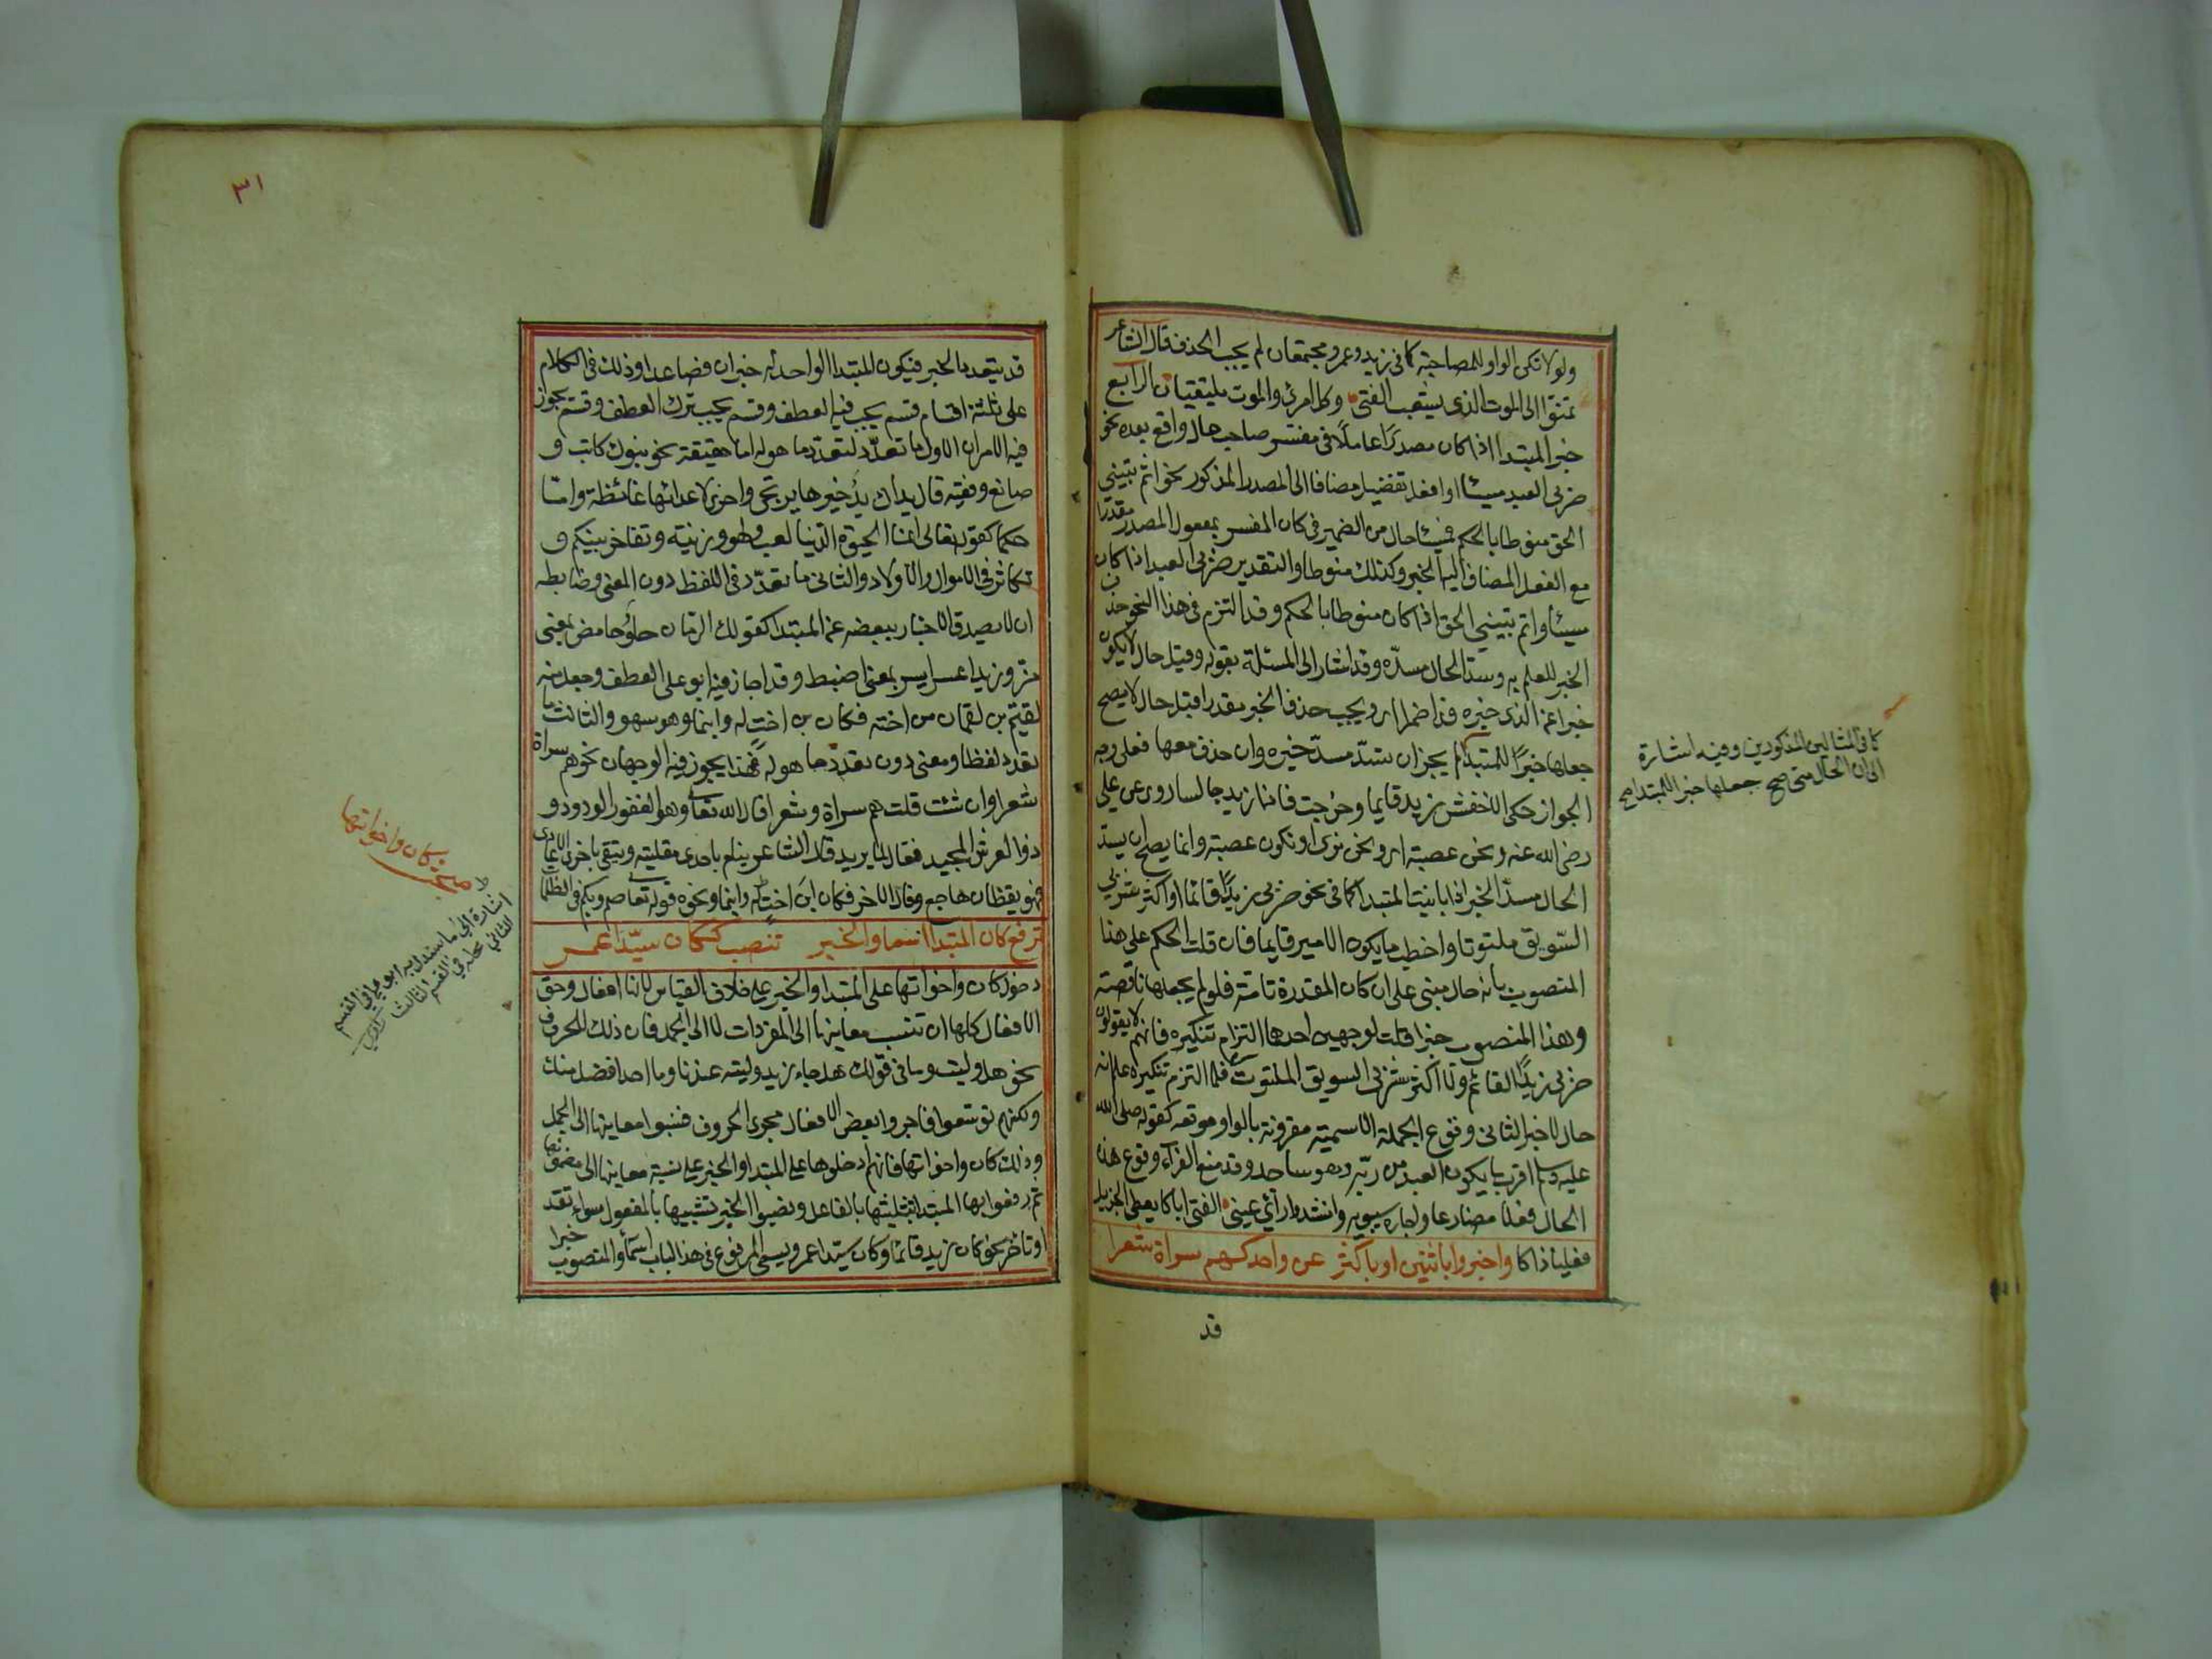 ولو لا تكن الواو للمصاحبة كما فى زيد وعمرو مجتمعان لم يجب الحذف قال الشاعر
تمنوا الى الموت الذى يشعب الفتى وكل امرئ والموت يلتقيان الرابع
خبر المبتدا اذا كان مصدرا عاملا فى مفسر صاحب حال واقع بعده نحو
ضربى العبد مسيئا او افعل تفضيل مضافا الى المصدر المذكور نحو اتم تبيينى
الحق منوطا بالحكم فمسيئا حال من الضمير فى كان المفسر بمفعول المصدر مقدرا
مع الفعل المضاف اليه الخبر وكذلك منوطا والتقدير ضربى العبد اذا كان
مسيئا واتم تبيينى الحق اذا كان منوطا بالحكم وقد التزم فى هذا النحو حذف
الخبر للعلم به وسد الحال مسدّه وقد اشار الى المسئلة بقوله وقبل حال لا يكون
خبرا عن الذى خبره قد اضمرا اى ويجب حذف الخبر مقدرا قبل حال لا يصح
جعلها خبرًا للمبتدا لم يجز ان تسدّ مسدّ خبره وان حذف معها فعلى وجه
الجواز حكى الاخفش زيد قايما وخرجت فاذا زيد جالسا وروى عن على
رضى الله عنه ونحن عصبة اى ونحن نرى او نكون عصبة وانما يصح ان يسدّ
الحال مسدّ الخبر اذا باينت المبتدا كما فى نحو ضربى زيدًا قائما او اكثر شربى
السّويق ملتوتا واخطب ما يكون الامير قايما فان قلت الحكم على هذا
المنصوب بانه حال مبنى على ان كان المقدرة تامة فلم لم يجعلها ناقصة
وهذا المنصوب خبرا قلت لوجهين احدها التزام تنكيره فانهم لا يقولون
ضربى زيدًا القائم ولا اكثر شربى السويق الملتوت فلما التزم تنكيره علم انه
حال لا خبر الثانى وقوع الجملة الاسمية مقرونة بالواو موقعه كقوله صلى الله
عليه وسلم اقرب ما يكون العبد من ربّه وهو ساجد وقد منع الفرآء وقوع هذه
الحال فعلا مضارعا واجازه سيبويه وانشد وراى عينى الفتى اباكا يعطى الجزيل
فعليك ذاكا واخبروا باثنين او باكثر عن واحد كهم سراة شعرا
قد
كما فى المثالين المذكورين وفيه اشارة
الى ان الحال متى صح جعلها خبر اللمبتدا صح
٣١
قد يتعدد الخبر فيكون للمبتدا الواحد له خبران فصاعدا وذلك فى الكلام
على ثلثة اقسام قسم يجب فيه العطف وقسم يجب ترك العطف وقسم يجوز
فيه الامران الاول ما تعدّد لتعدّد ما هو له اما حقيقة نحو بنوك كاتب و
صانع وفقيه قال يداك يدٌ خيرها يرتجى واخرى لاعدائها غائظة واما
حكما كقوله تعالى انما الحيوة الدنيا لعب ولهو وزينة وتفاخر بينكم و
تكاثر فى الاموال والاولاد والثانى ما تعدّد فى اللفظ دون المعنى وضابطه
ان لا يصدق الاخبار ببعضه عن المبتدا كقولك الرمان حلوٌ حامض بمعنى
مز وزيد اعسر ايسر بمعنى اضبط وقد اجاز فيه ابو على العطف وجعل منه
لقيم بن لقمان من اخته فكان بن اخت له وابنما وهو سهو والثالث ما
تعدد لفظا ومعنى دون تعدّد ما هو له فهذا يجوز فيه الوجهان نحو هم سراة
شعرا وان شئت قلت هم سراة وشعرا قال الله تعا وهو الغفور الودود و
ذو العرش المجيد فعال لما يريد قال الشاعر ينام باحدى مقلتيه ويتقى باخرى الاعادى
فهو يقظان هاجع وقال الاخر فكان ابن اخت له وابنما ونحوه قوله تعا صم وبكم فى الظلمات
ترفع كان المبتدا اسما والخبر تنصبه ككان سيّدا عمر
دخول كان واخواتها على المبتدا والخبر على خلاف القياس لانها افعال وحق
الافعال كلها ان تنسب معانيها الى المفردات لا الى الجمل فان ذلك للحروف
نحو هل وليت وما فى قولك هل جاء زيد وليته عندنا وما احد افضل منك
ولكنهم توسعوا فاجروا بعض الافعال مجرى الحروف فنسبوا معانيها الى الجمل
وذلك كان واخواتها فانهم ادخلوها على المبتدا والخبر على نسبة معانيها الى مضمونها
ثم رفعوا بها المبتدا تشبيها بالفاعل ونصبوا الخبر تشبيها بالمفعول سواء تقدم
او تاخر نحو كان زيد قائما وكان سيّدا عمرو ويسمى المرفوع فى هذا الباب اسما والمنصوب خبرا
مبحث كان واخواتها
اشارة الى ما استدل به ابو على فى القسم
الثانى محله فى القسم الثالث